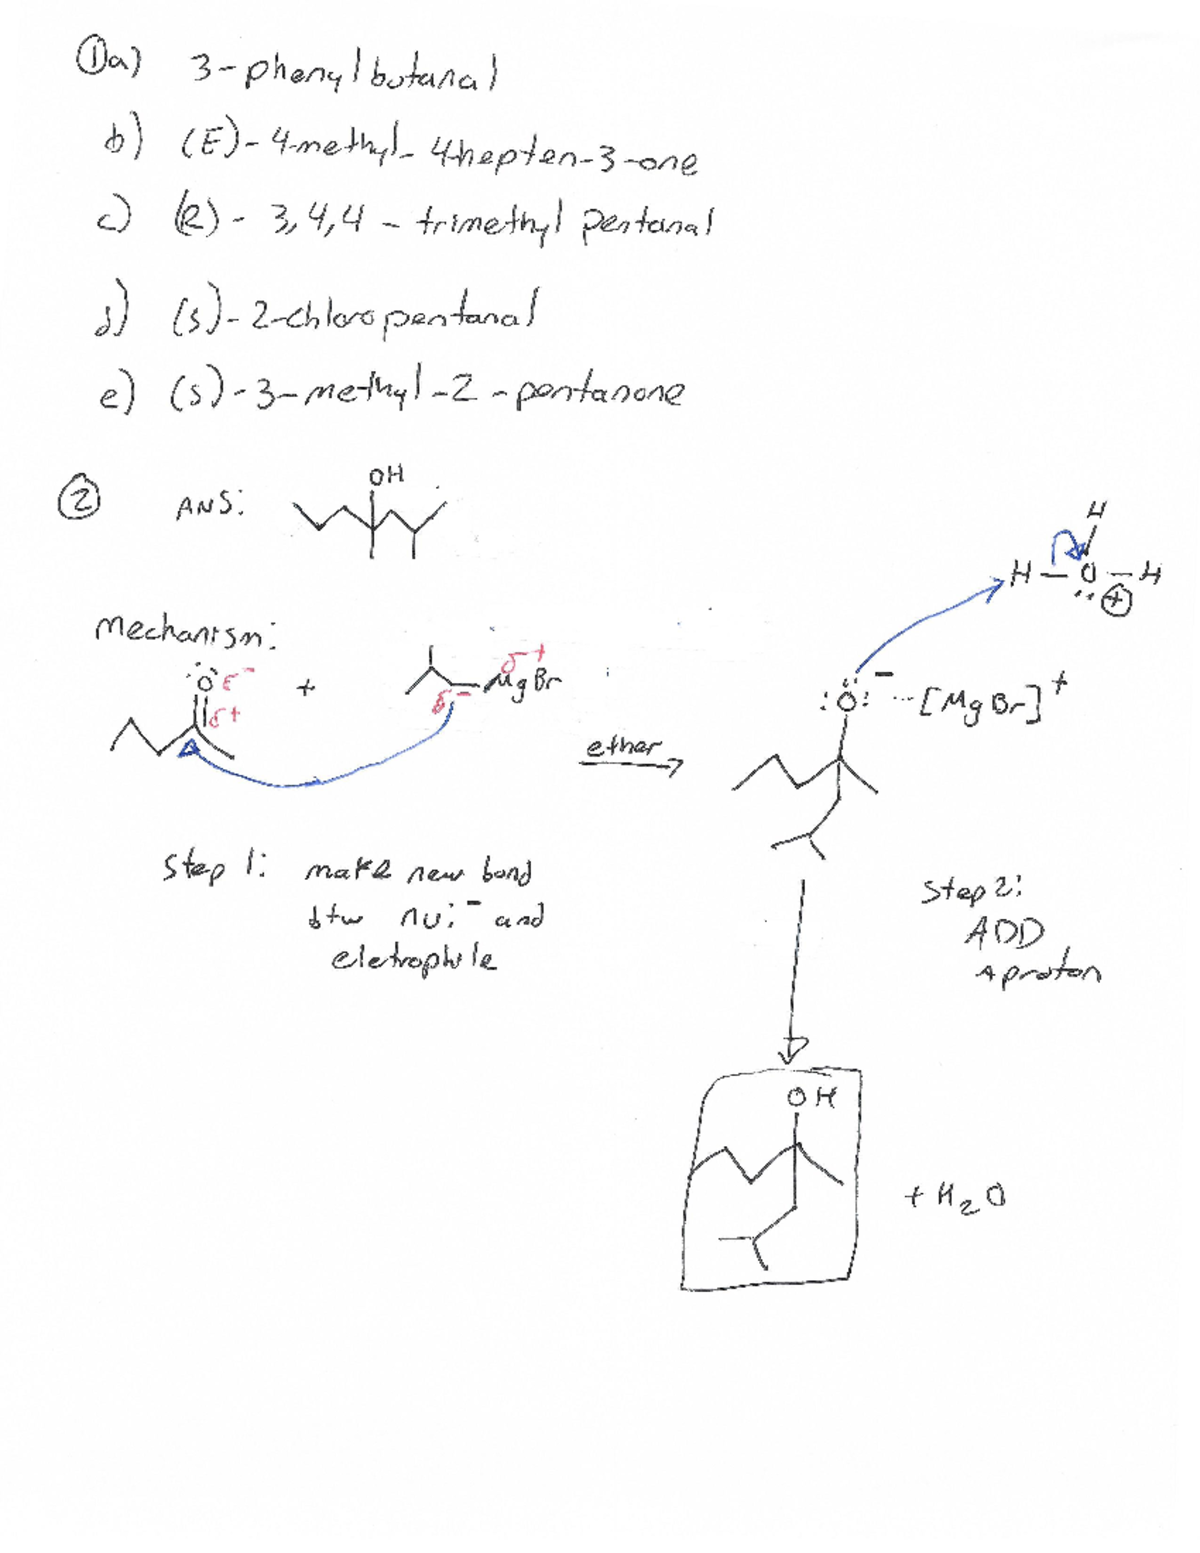 ①a) 3-phenyl butanal
b) (E)-4-methyl-4-hepten-3-one
c) (R)-3,4,4-trimethyl pentanal
d) (S)-2-chloropentanal
e) (S)-3-methyl-2-pentanone
② ANS: OH
H
H-O-H
⊕
Mechanism:
O δ- + MgBr δ+
δ+ δ-
ether
:O:- ···[MgBr]+
Step 1: make new bond
btw nu:- and
eletrophile
Step 2:
ADD
A proton
OH
+ H2O